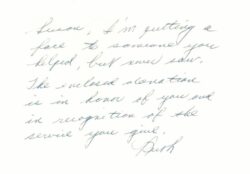 Susan, I'm putting a
face to someone you
helped, but never saw.
The enclosed donation
is in honor of you and
in recognition of the
service you give.